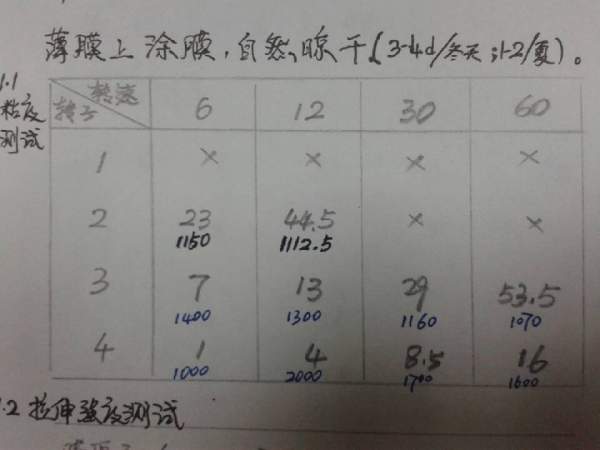 薄膜上涂膜，自然晾干(3-4d/冬天；1-2/夏)。
1.1 粘度测试
转速
转子 6 12 30 60
1 × × × ×
2 23 44.5 × ×
1150 1112.5
3 7 13 29 53.5
1400 1300 1160 1070
4 1 4 8.5 16
1000 2000 1700 1600
.2 拉伸强度测试